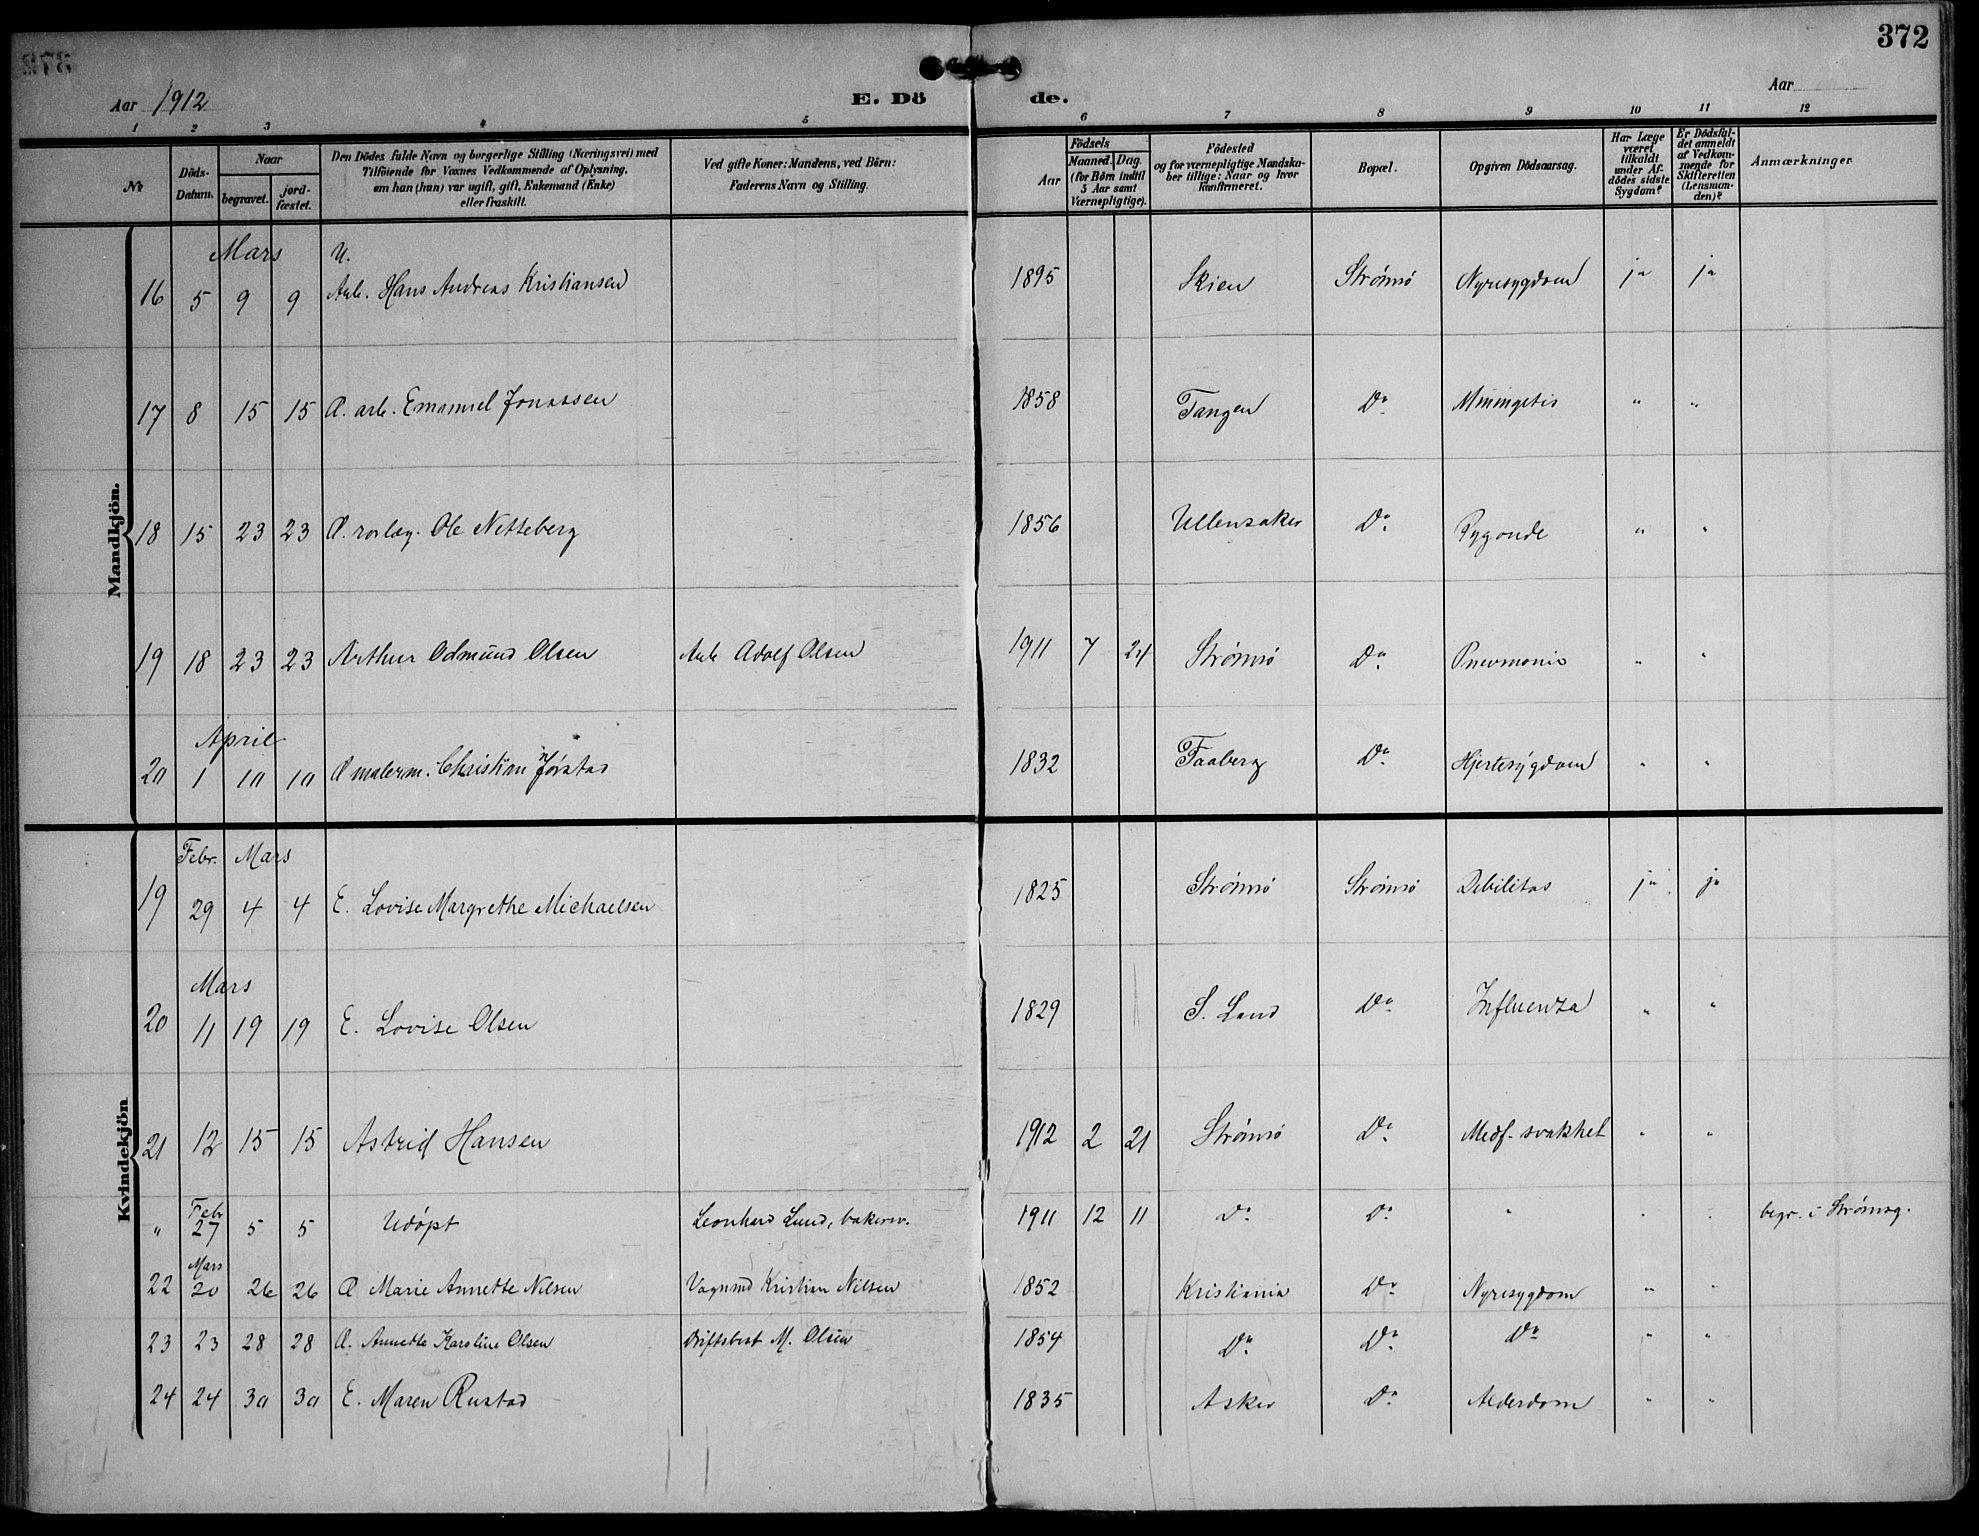 372
Aar 1912
E. Dö de.
Aar
1 2 3 4 5 6 7 8 9 10 11 12
№
Döds-Datum.
Naar
begravet.
jord-fæstet.
Den Dödes fulde Navn og borgerlige Stilling (Næringsvei) med
Tilföiende for Voxnes Vedkommende af Oplysning,
om han (hun) var ugift, gift, Enkemand (Enke)
eller fraskilt.
Ved gifte Koner: Mandens, ved Börn:
Faderens Navn og Stilling.
Födsels
Aar
Maaned. Dag.
(for Børn indtil
5 Aar samt
Værnepligtige).
Födested
og for værnepligtige Mandska-
ber tillige: Naar og hvor
konfirmeret.
Bopæl.
Opgiven Dödsaarsag.
Har Læge
været
tilkaldt
under Af-
dödes sidste
Sygdom?
Er Dödsfal-
det anmeldt
af Vedkom-
mende for
Skifteretten
(Lensman-
den)?
Anmærkninger
Mandkjön.
Mars
U.
16 5 9 9 Arb. Hans Andreas Kristiansen 1895 Skien Strømsö Nyresygdom ja ja
17 8 15 15 G. arb. Emanuel Jonassen 1858 Tangen Do Miningitis " "
18 15 23 23 G. Ole Netteberg 1856 Ullensaker Do " "
19 18 23 23 Arthur Odmund Olsen Arb Adolf Olsen 1911 7 24 Strømsö Do Pneumonie " "
April
20 1 10 10 G malerm. Christian Jørstad 1832 Faaberg Do Hjertesygdom " "
Kvindekjön
Febr. Mars
19 29 4 4 E. Lovise Margrethe Michaelsen 1825 Strømsö Strømsö Debilitas ja ja
Mars
20 11 19 19 E. Lovise Olsen 1829 S. Land Do Influenza " "
21 12 15 15 Astrid Hansen 1912 2 21 Strømsö Do Medf. svakhet " "
Febr
" 27 5 5 Udøpt Leonhard Lund, bakersv. 1911 12 11 Do Do " " " begr. i Strømsg.
Mars
22 20 26 26 G Marie Annette Nilsen Vognmd Kristian Nilsen 1852 Kristiania Do Nyresygdom " "
23 23 28 28 G. Annette Karoline Olsen Driftsbest M. Olsen 1854 Do Do Do " "
24 24 30 30 E. Maren Rustad 1835 Asker Do Alderdom " "